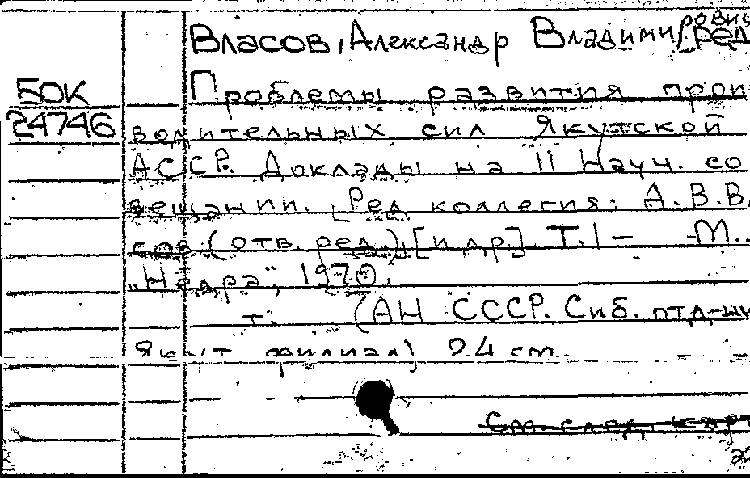 Власов, Александр Владимирович, ред.
БОК
24746
Проблемы развития произ
водительных сил Якутской
АССР. Доклады на II Науч. со
вещании. [Ред. коллегия: А.В.В.
сов (отв. ред.) [и др.] Т.1 – М.
„Недра", 1970.
т. (АН СССР. Сиб. отд-ни
Якут филиал) 24 cm
См. след. карт